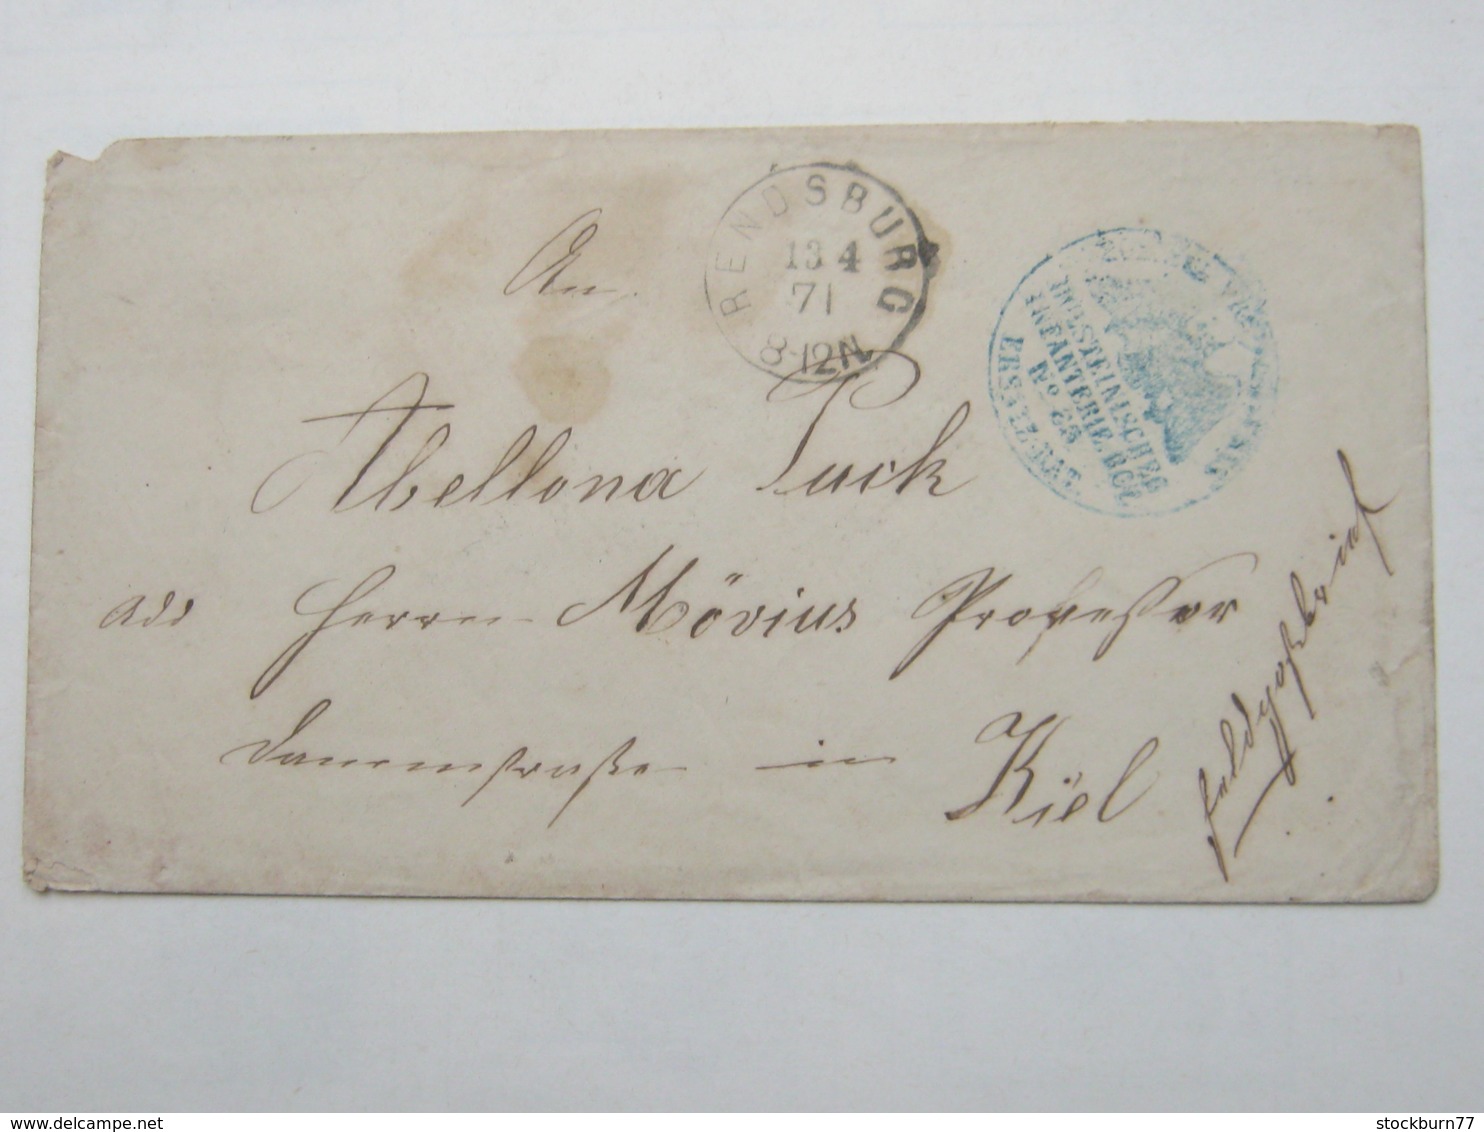 RENDSBURG
13 4
71
8-12N
HOLSTEINISCHES
INFANTERIE RGT.
No 85
ERSATZ-BAT.
An
Abellona Puck
add Herrn Mövius Professor
Dammstraße in Kiel
Feldpostbrief
delcampe.net
stockburn77